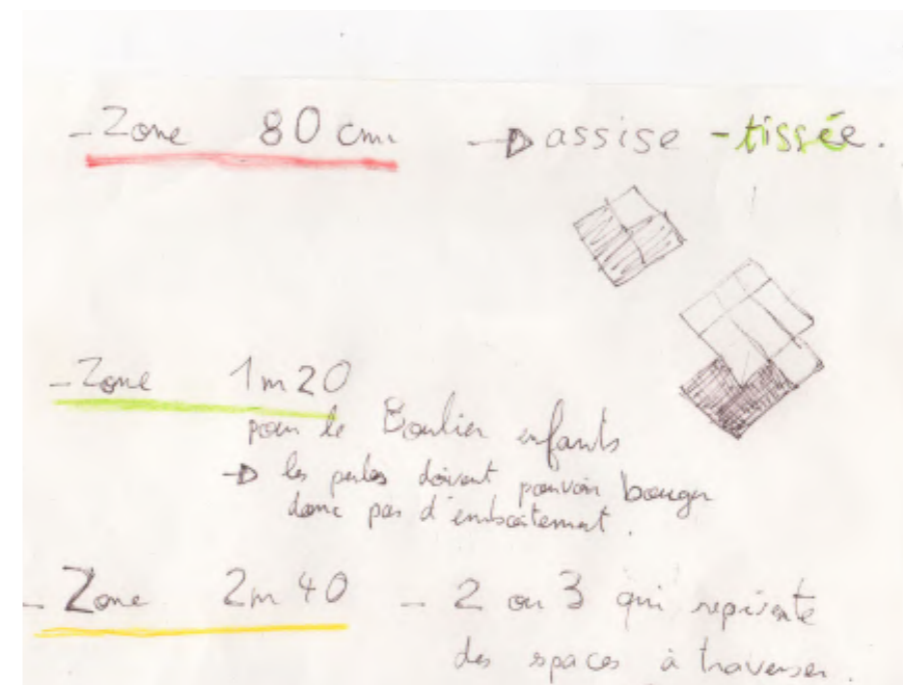 - Zone 80 cm → assise - tissée.
- Zone 1m20
pour le Boulier enfants
→ les perles doivent pouvoir bouger
donc pas d'emboitement.
- Zone 2m40 - 2 ou 3 qui représente
des spaces à traverser.